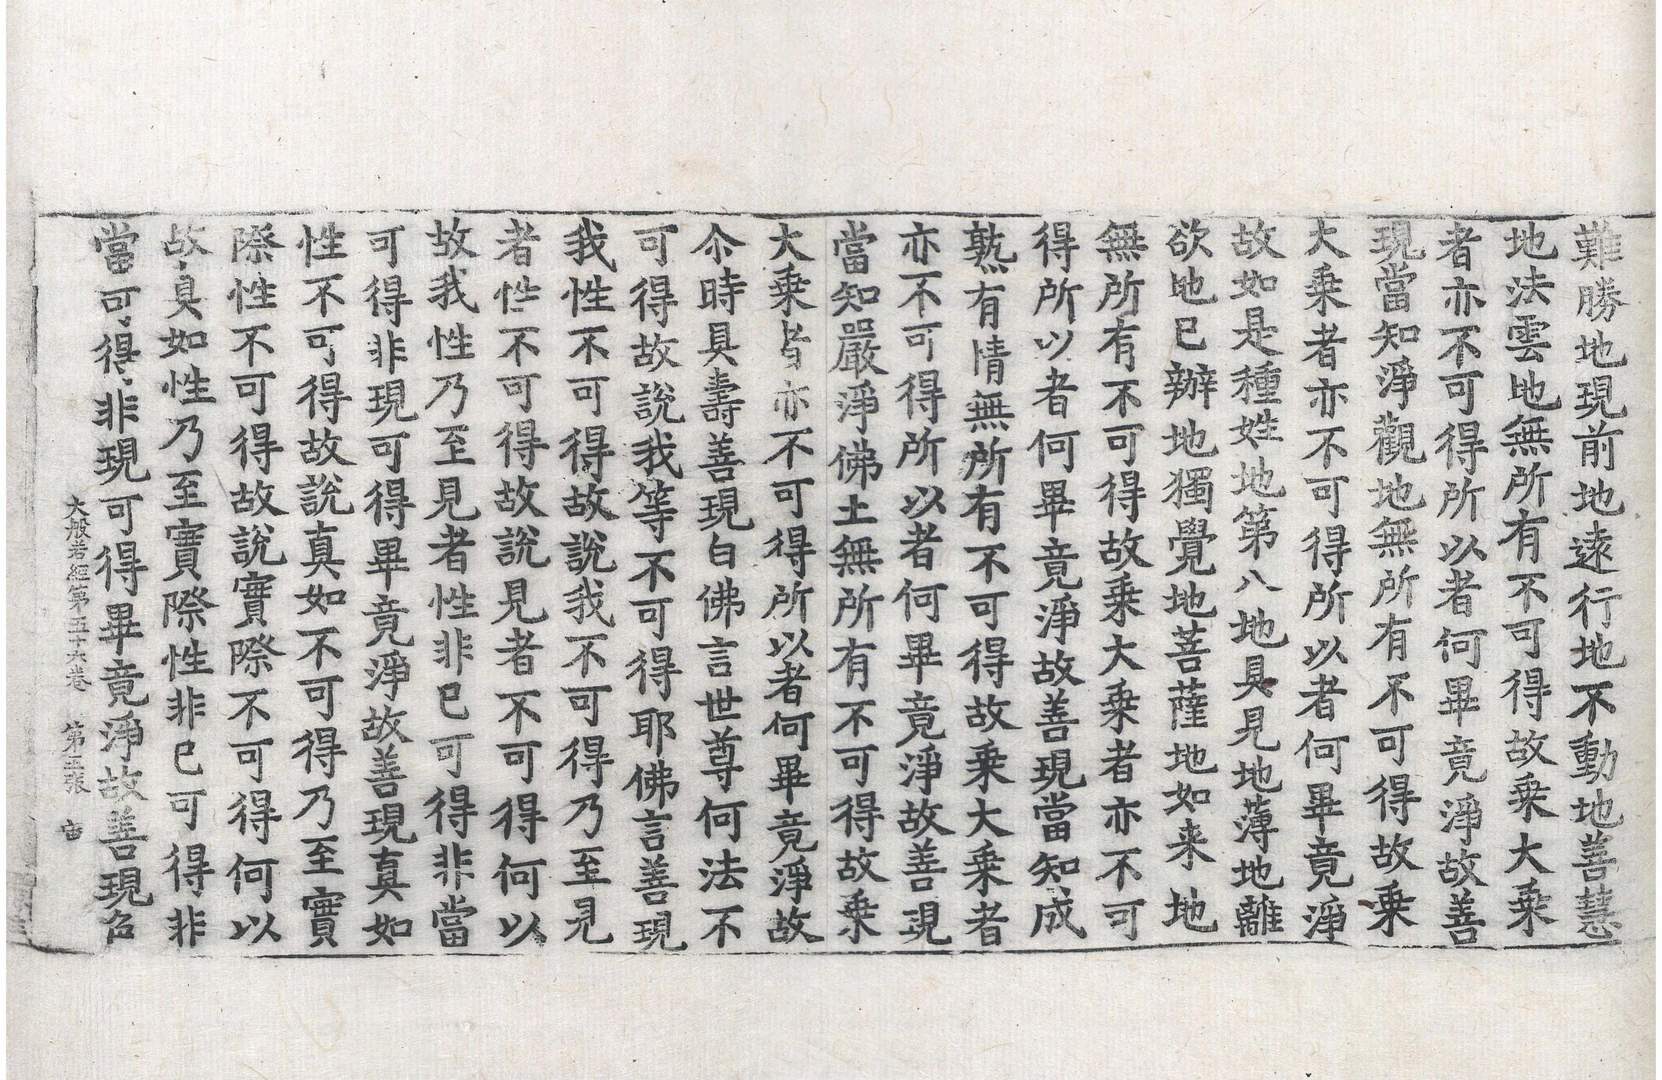 難勝地現前地遠行地不動地善慧
地法雲地無所有不可得故乘大乘
者亦不可得所以者何畢竟淨故善
現當知淨觀地無所有不可得故乘
大乘者亦不可得所以者何畢竟淨
故如是種姓地第八地具見地薄地離
欲地已辦地獨覺地菩薩地如来地
無所有不可得故乘大乘者亦不可
得所以者何畢竟淨故善現當知成
熟有情無所有不可得故乘大乘者
亦不可得所以者何畢竟淨故善現
當知嚴淨佛土無所有不可得故乘
大乘者亦不可得所以者何畢竟淨故
尒時具壽善現白佛言世尊何法不
可得故說我等不可得耶佛言善現
我性不可得故說我不可得乃至見
者性不可得故說見者不可得何以
故我性乃至見者性非已可得非當
可得非現可得畢竟淨故善現真如
性不可得故說真如不可得乃至實
際性不可得故說實際不可得何以
故真如性乃至實際性非已可得非
當可得非現可得畢竟淨故善現色
大般若經第五十六卷　第五張　宙